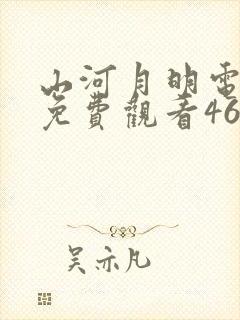 山河月明電
免費觀看46
吴亦凡